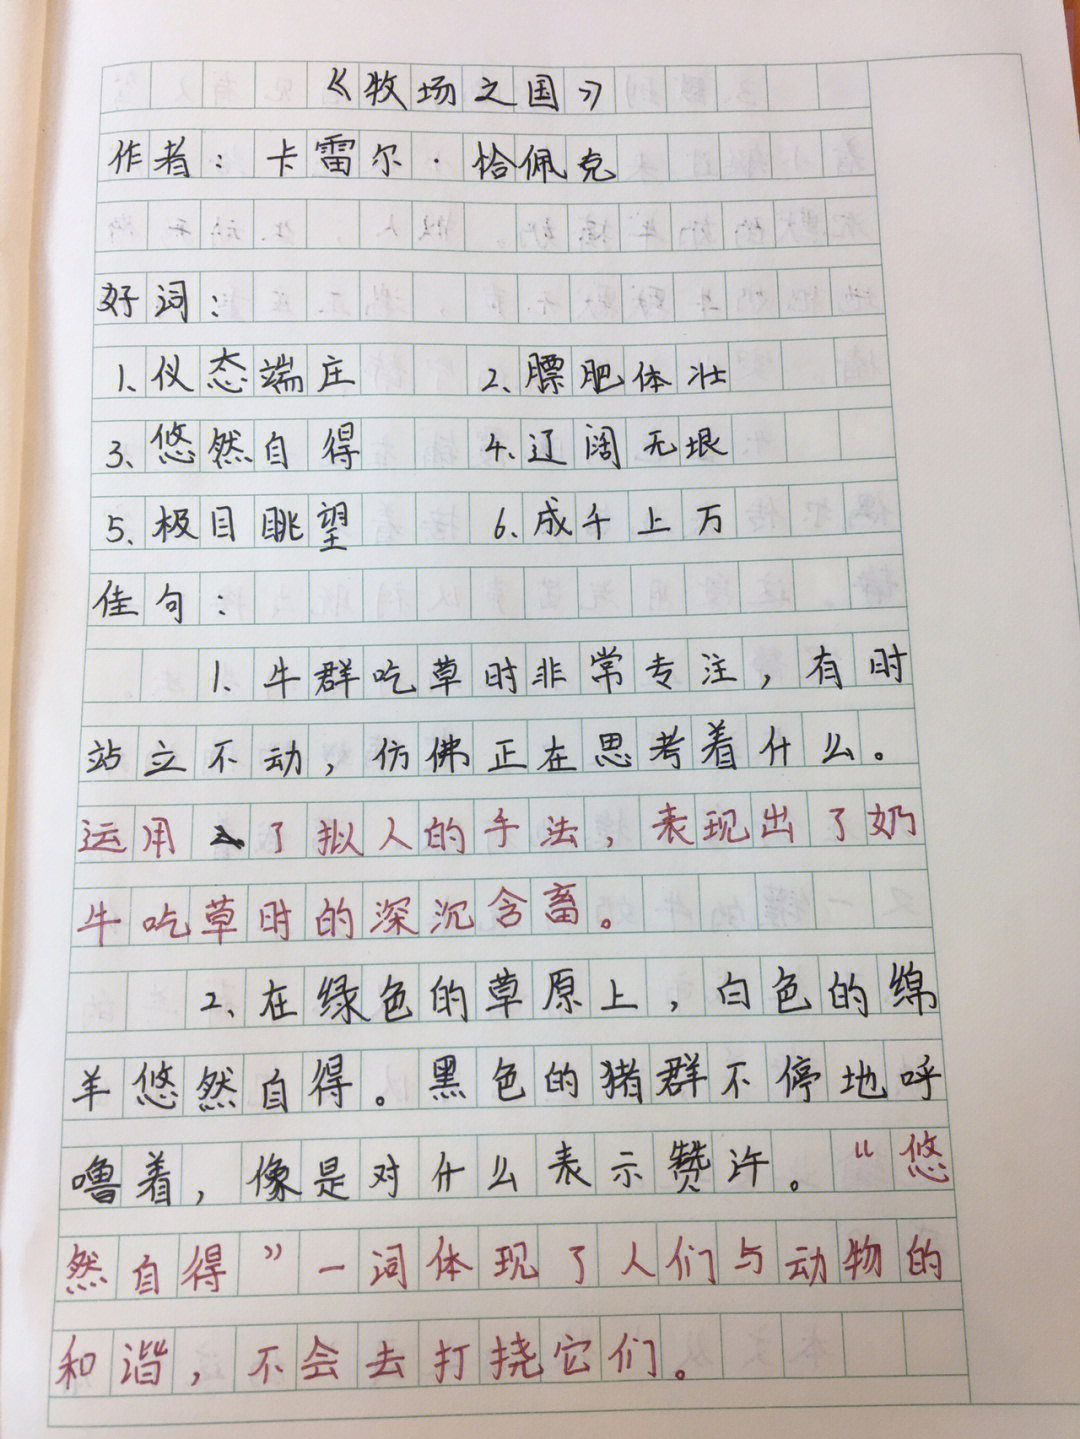 《牧场之国》
作者：卡雷尔·恰佩克
好词：
1、仪态端庄 2、膘肥体壮
3、悠然自得 4、辽阔无垠
5、极目眺望 6、成千上万
佳句：
1、牛群吃草时非常专注，有时
站立不动，仿佛正在思考着什么。
运用了拟人的手法，表现出了奶
牛吃草时的深沉含畜。
2、在绿色的草原上，白色的绵
羊悠然自得。黑色的猪群不停地呼
噜着，像是对什么表示赞许。“悠
然自得”一词体现了人们与动物的
和谐，不会去打挠它们。